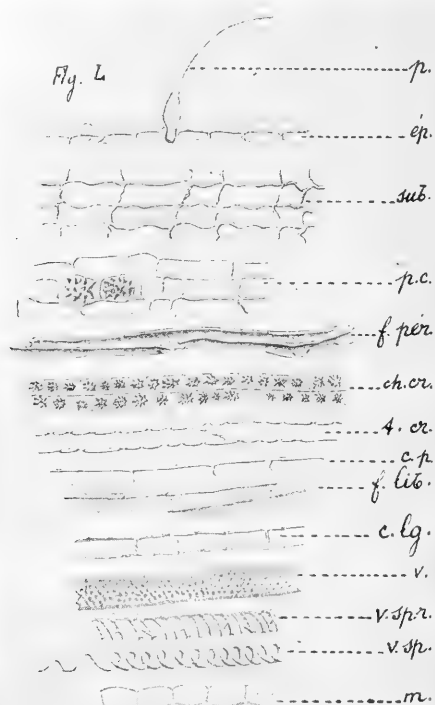 Fig. L
p.
ép.
sub.
p.c.
f. pér.
ch. cr.
t. cr.
c. p.
f. lib.
c. lg.
v.
v. sp. r.
v. sp.
m.